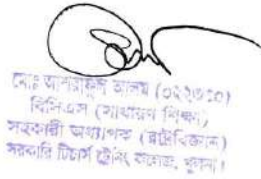 মোঃ আশরাফুল আলম
বিসিএস (সাধারণ শিক্ষা)
সহকারী অধ্যাপক (রাষ্ট্রবিজ্ঞান)
সরকারি টিচার্স ট্রেনিং কলেজ, খুলনা।